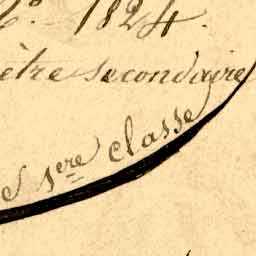 1824.
être secondaire
e 1ere classe